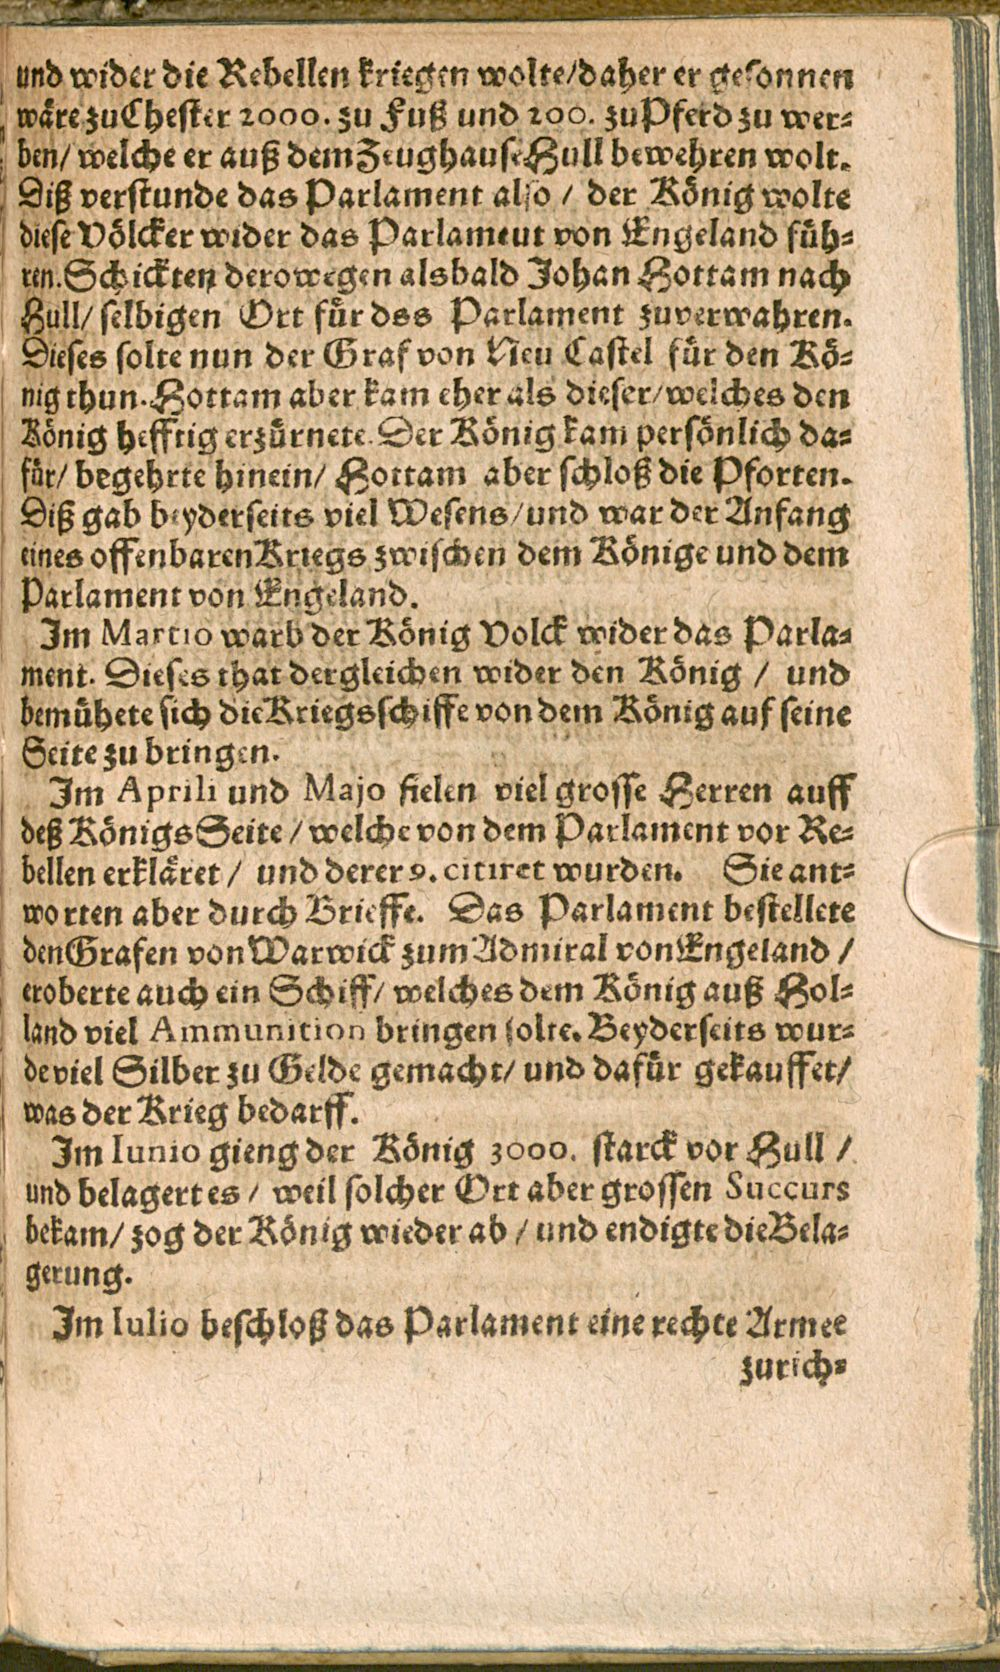 und wider die Rebellen kriegen wolte/daher er gesonnen
wäre zu Chester 2000. zu Fuß und 200. zu Pferd zu wer⸗
ben/ welche er auß dem Zeughause Hull bewehren wolt.
Diß verstunde das Parlament also / der König wolte
diese Völcker wider das Parlameut von Engeland füh⸗
ren. Schickten derowegen alsbald Johan Hottam nach
Hull/ selbigen Ort für dss Parlament zuverwahren.
Dieses solte nun der Graf von Neu Castel für den Kö⸗
nig thun. Hottam aber kam eher als dieser/welches den
König hefftig erzürnete. Der König kam persönlich da⸗
für/ begehrte hinein/ Hottam aber schloß die Pforten.
Diß gab beyderseits viel Wesens/und war der Anfang
eines offenbaren Kriegs zwischen dem Könige und dem
Parlament von Engeland.
Im Martio warb der König Volck wider das Parla⸗
ment. Dieses that dergleichen wider den König / und
bemühete sich die Kriegsschiffe von dem König auf seine
Seite zu bringen.
Im Aprili und Majo fielen viel grosse Herren auff
deß Königs Seite / welche von dem Parlament vor Re⸗
bellen erkläret / und derer 9. citiret wurden. Sie ant⸗
worten aber durch Brieffe. Das Parlament bestellete
den Grafen von Warwick zum Admiral von Engeland /
eroberte auch ein Schiff/ welches dem König auß Hol⸗
land viel Ammunition bringen solte. Beyderseits wur⸗
de viel Silber zu Gelde gemacht/ und dafür gekauffet/
was der Krieg bedarff.
Im Iunio gieng der König 3000. starck vor Hull /
und belagert es / weil solcher Ort aber grossen Succurs
bekam/ zog der König wieder ab / und endigte die Bela⸗
gerung.
Im Iulio beschloß das Parlament eine rechte Armee
zurich⸗